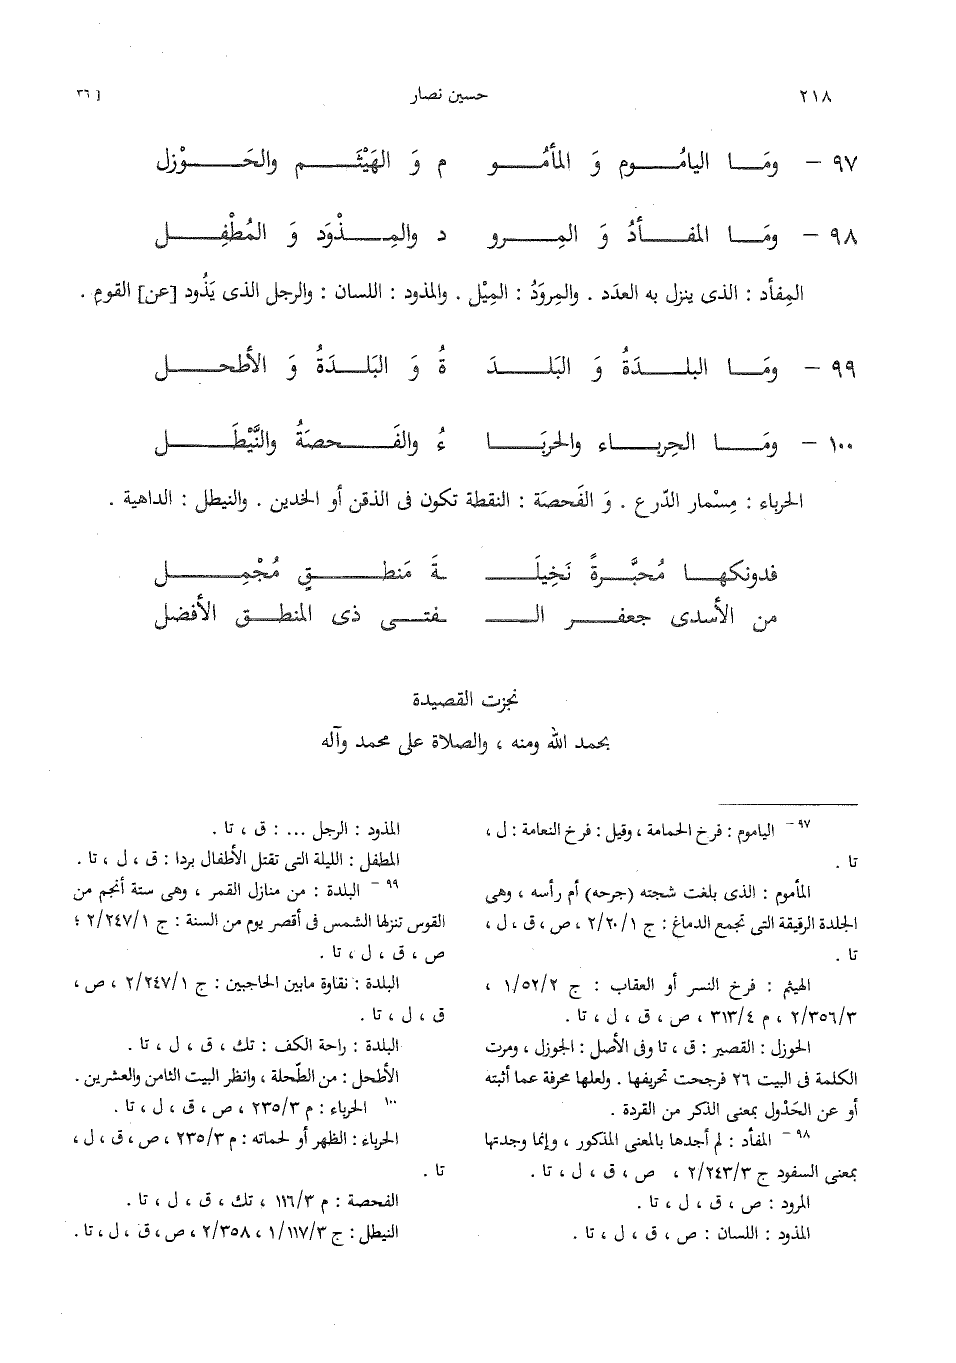 ٢١٨ حسين نصار [ ٣٦
٩٧ – ومَا اليامُوم وَ المأمُو م وَ الهَيْثَم والحَوْزل
٩٨ – ومَا المفأدُ وَ المِرو د والمِذْوَد وَ المُطْفِل
المِفأد : الذى ينزل به العدَد . والمِروَدُ : المِيْل . والمذود : اللسان : والرجل الذى يَذُود [عن] القومِ .
٩٩ – ومَا البلدَةُ وَ البَلدَ ةُ وَ البَلدَةُ وَ الأطحل
١٠٠ – ومَا الحِرباء والحربَا ءُ والفَحصَةُ والنَّيْطَل
الحرباء : مِسْمار الدّرع . وَ الفَحصَة : النقطة تكون فى الذقن أو الخدين . والنيطل : الداهية .
فدونكها مُحبَّرةً نَخِيلَ ةَ مَنطقٍ مُجْمِل
من الأسدى جعفر ال فتى ذى المنطق الأفضل
نجزت القصيدة
بحمد الله ومنه ، والصلاة على محمد وآله
٩٧ – الياموم : فرخ الحمامة ، وقيل : فرخ النعامة : ل ،
تا .
المأموم : الذى بلغت شجته (جرحه) أم رأسه ، وهى
الجلدة الرقيقة التى تجمع الدماغ : ج ٢/٢٠/١ ، ص ، ق ، ل ،
تا .
الهيثم : فرخ النسر أو العقاب : ج ١/٥٢/٢ ،
٢/٣٥٦/٣ ، م ٣١٣/٤ ، ص ، ق ، ل ، تا .
الحوزل : القصير : ق ، تا وفى الأصل : الجوزل ، ومرت
الكلمة فى البيت ٢٦ فرجحت تحريفها . ولعلها محرفة عما أثبته
أو عن الحَذْول بمعنى الذكر من القردة .
٩٨ – المفأد : لم أجدها بالمعنى المذكور ، وإنما وجدتها
بمعنى السفود ج ٢/٢٤٣/٣ ، ص ، ق ، ل ، تا .
المرود : ص ، ق ، ل ، تا .
المذود : اللسان : ص ، ق ، ل ، تا .
المذود : الرجل ... : ق ، تا .
المطفل : الليلة التى تقتل الأطفال بردا : ق ، ل ، تا .
٩٩ – البلدة : من منازل القمر ، وهى ستة أنجم من
القوس تنزلها الشمس فى أقصر يوم من السنة : ج ٢/٢٤٧/١ ؛
ص ، ق ، ل ، تا .
البلدة : نقاوة مابين الحاجبين : ج ٢/٢٤٧/١ ، ص ،
ق ، ل ، تا .
البلدة : راحة الكف : تك ، ق ، ل ، تا .
الأطحل : من الطّحلة ، وانظر البيت الثامن والعشرين .
١٠٠ الحرباء : م ٢٣٥/٣ ، ص ، ق ، ل ، تا .
الحرباء : الظهر أو لحماته : م ٢٣٥/٣ ، ص ، ق ، ل ،
تا .
الفحصة : م ١١٦/٣ ، تك ، ق ، ل ، تا .
النيطل : ج ١/١١٧/٣ ، ٢/٣٥٨ ، ص ، ق ، ل ، تا .